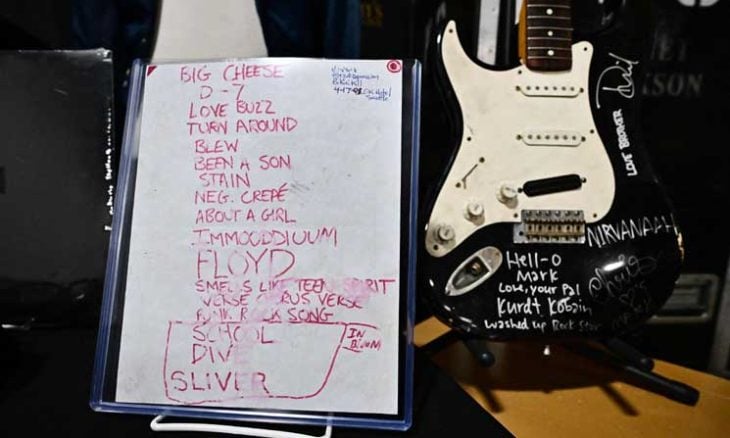 BIG CHEESE
D-7
LOVE BUZZ
TURN AROUND
BLEW
BEEN A SON
STAIN
NEG. CREPÉ
ABOUT A GIRL
IMMOODDIUUM
FLOYD
SMELLS LIKE TEEN SPIRIT
VERSE CHORUS VERSE
PUNK ROCK SONG
SCHOOL
DIVE
SLIVER
IN BLOOM
Nirvana
4-17-91 OK Hotel
Seattle
LOVE BROWER
NIRVANAAH
Hell-O
Mark
Love, your Pal
Kurdt Kobain
washed up Rock Star
SON